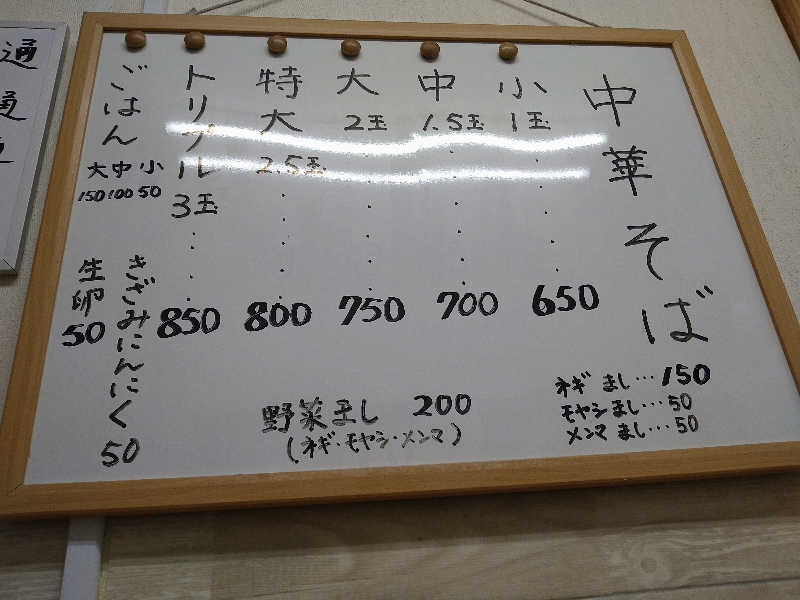 中華そば
小 1玉 ・・・・ 650
中 1.5玉 ・・・・ 700
大 2玉 ・・・・・ 750
特大 2.5玉 ・・・・ 800
トリプル 3玉 ・・・ 850
ネギ まし・・・150
モヤシ まし・・・50
メンマ まし・・・50
野菜まし 200
(ネギ・モヤシ・メンマ)
ごはん
小 50
中 100
大 150
きざみにんにく 50
生卵 50
通
通